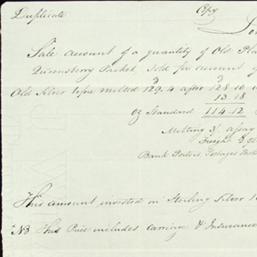 Duplicate Copy
Lon
Sale account of a quantity of Old Pla
Queensberry Packet Sold for account of
Old Silver before melted 129.4 after 128.10
13.18
oz Standard 114.12
Melting & assay
Freight
Bank Porters Postages
This amount invested in Sterling Silver
NB This Price includes Carriage & Insurance